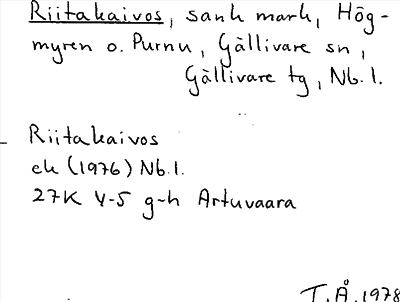 Riitakaivos, sank mark, Hög-
myren o. Purnu, Gällivare sn,
Gällivare tg, Nb. l.
Riitakaivos
ek (1976) Nb. l.
27K V-5 g-h Artuvaara
T. Å. 1978